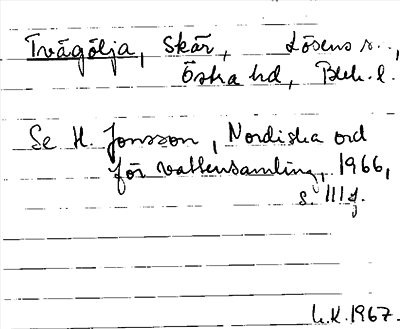 Tvägölja, Skär, Lösens s..,
Östra hd, Blek. l.
Se H. Jonsson, Nordiska ord
för vattensamling, 1966,
s. 111 f.
L.K. 1967.